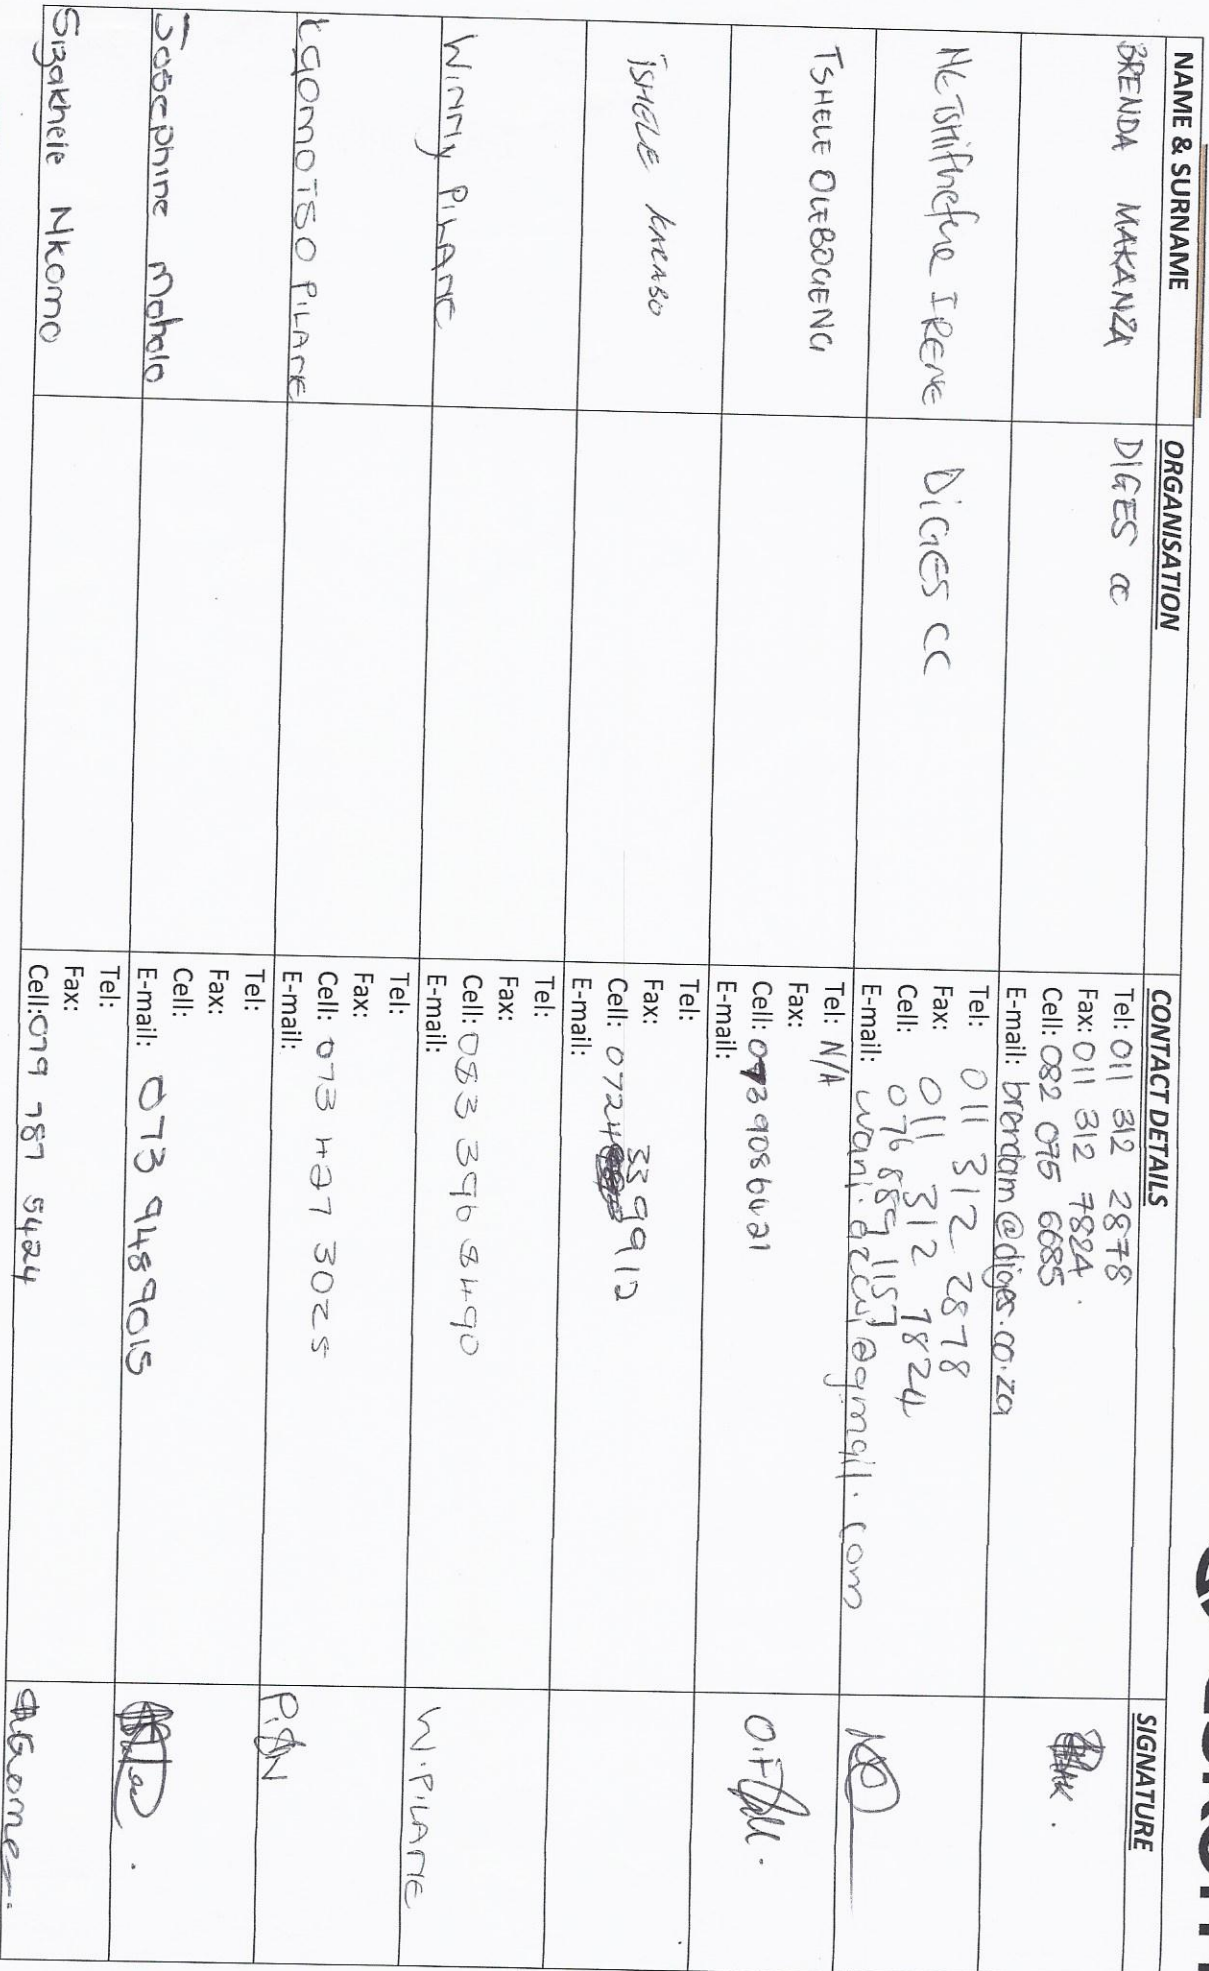 NAME & SURNAME ORGANISATION CONTACT DETAILS SIGNATURE
BRENDA MAKANZA DIGES cc
Tel: 011 312 2878
Fax: 011 312 7824.
Cell: 082 075 6685
E-mail: brendam@diges.co.za
IRENE DIGES CC
Tel: 011 312 2878
Fax: 011 312 7824
Cell: 076 889 1157
E-mail:
TSHELE OLEBOGENG
Tel: N/A
Fax:
Cell:
E-mail:
O.F
TSHELE KARABO
Tel:
Fax:
Cell: 0724339912
E-mail:
Winny PILANE
Tel:
Fax:
Cell: 083 396 8490
E-mail:
W.PILANE
KGOMOTSO PILANE
Tel:
Fax:
Cell: 073 427 3025
E-mail:
Josephine Moholo
Tel:
Fax:
Cell:
E-mail: 073 9489015
Sizakhele Nkomo
Tel:
Fax:
Cell: 079 787 5424